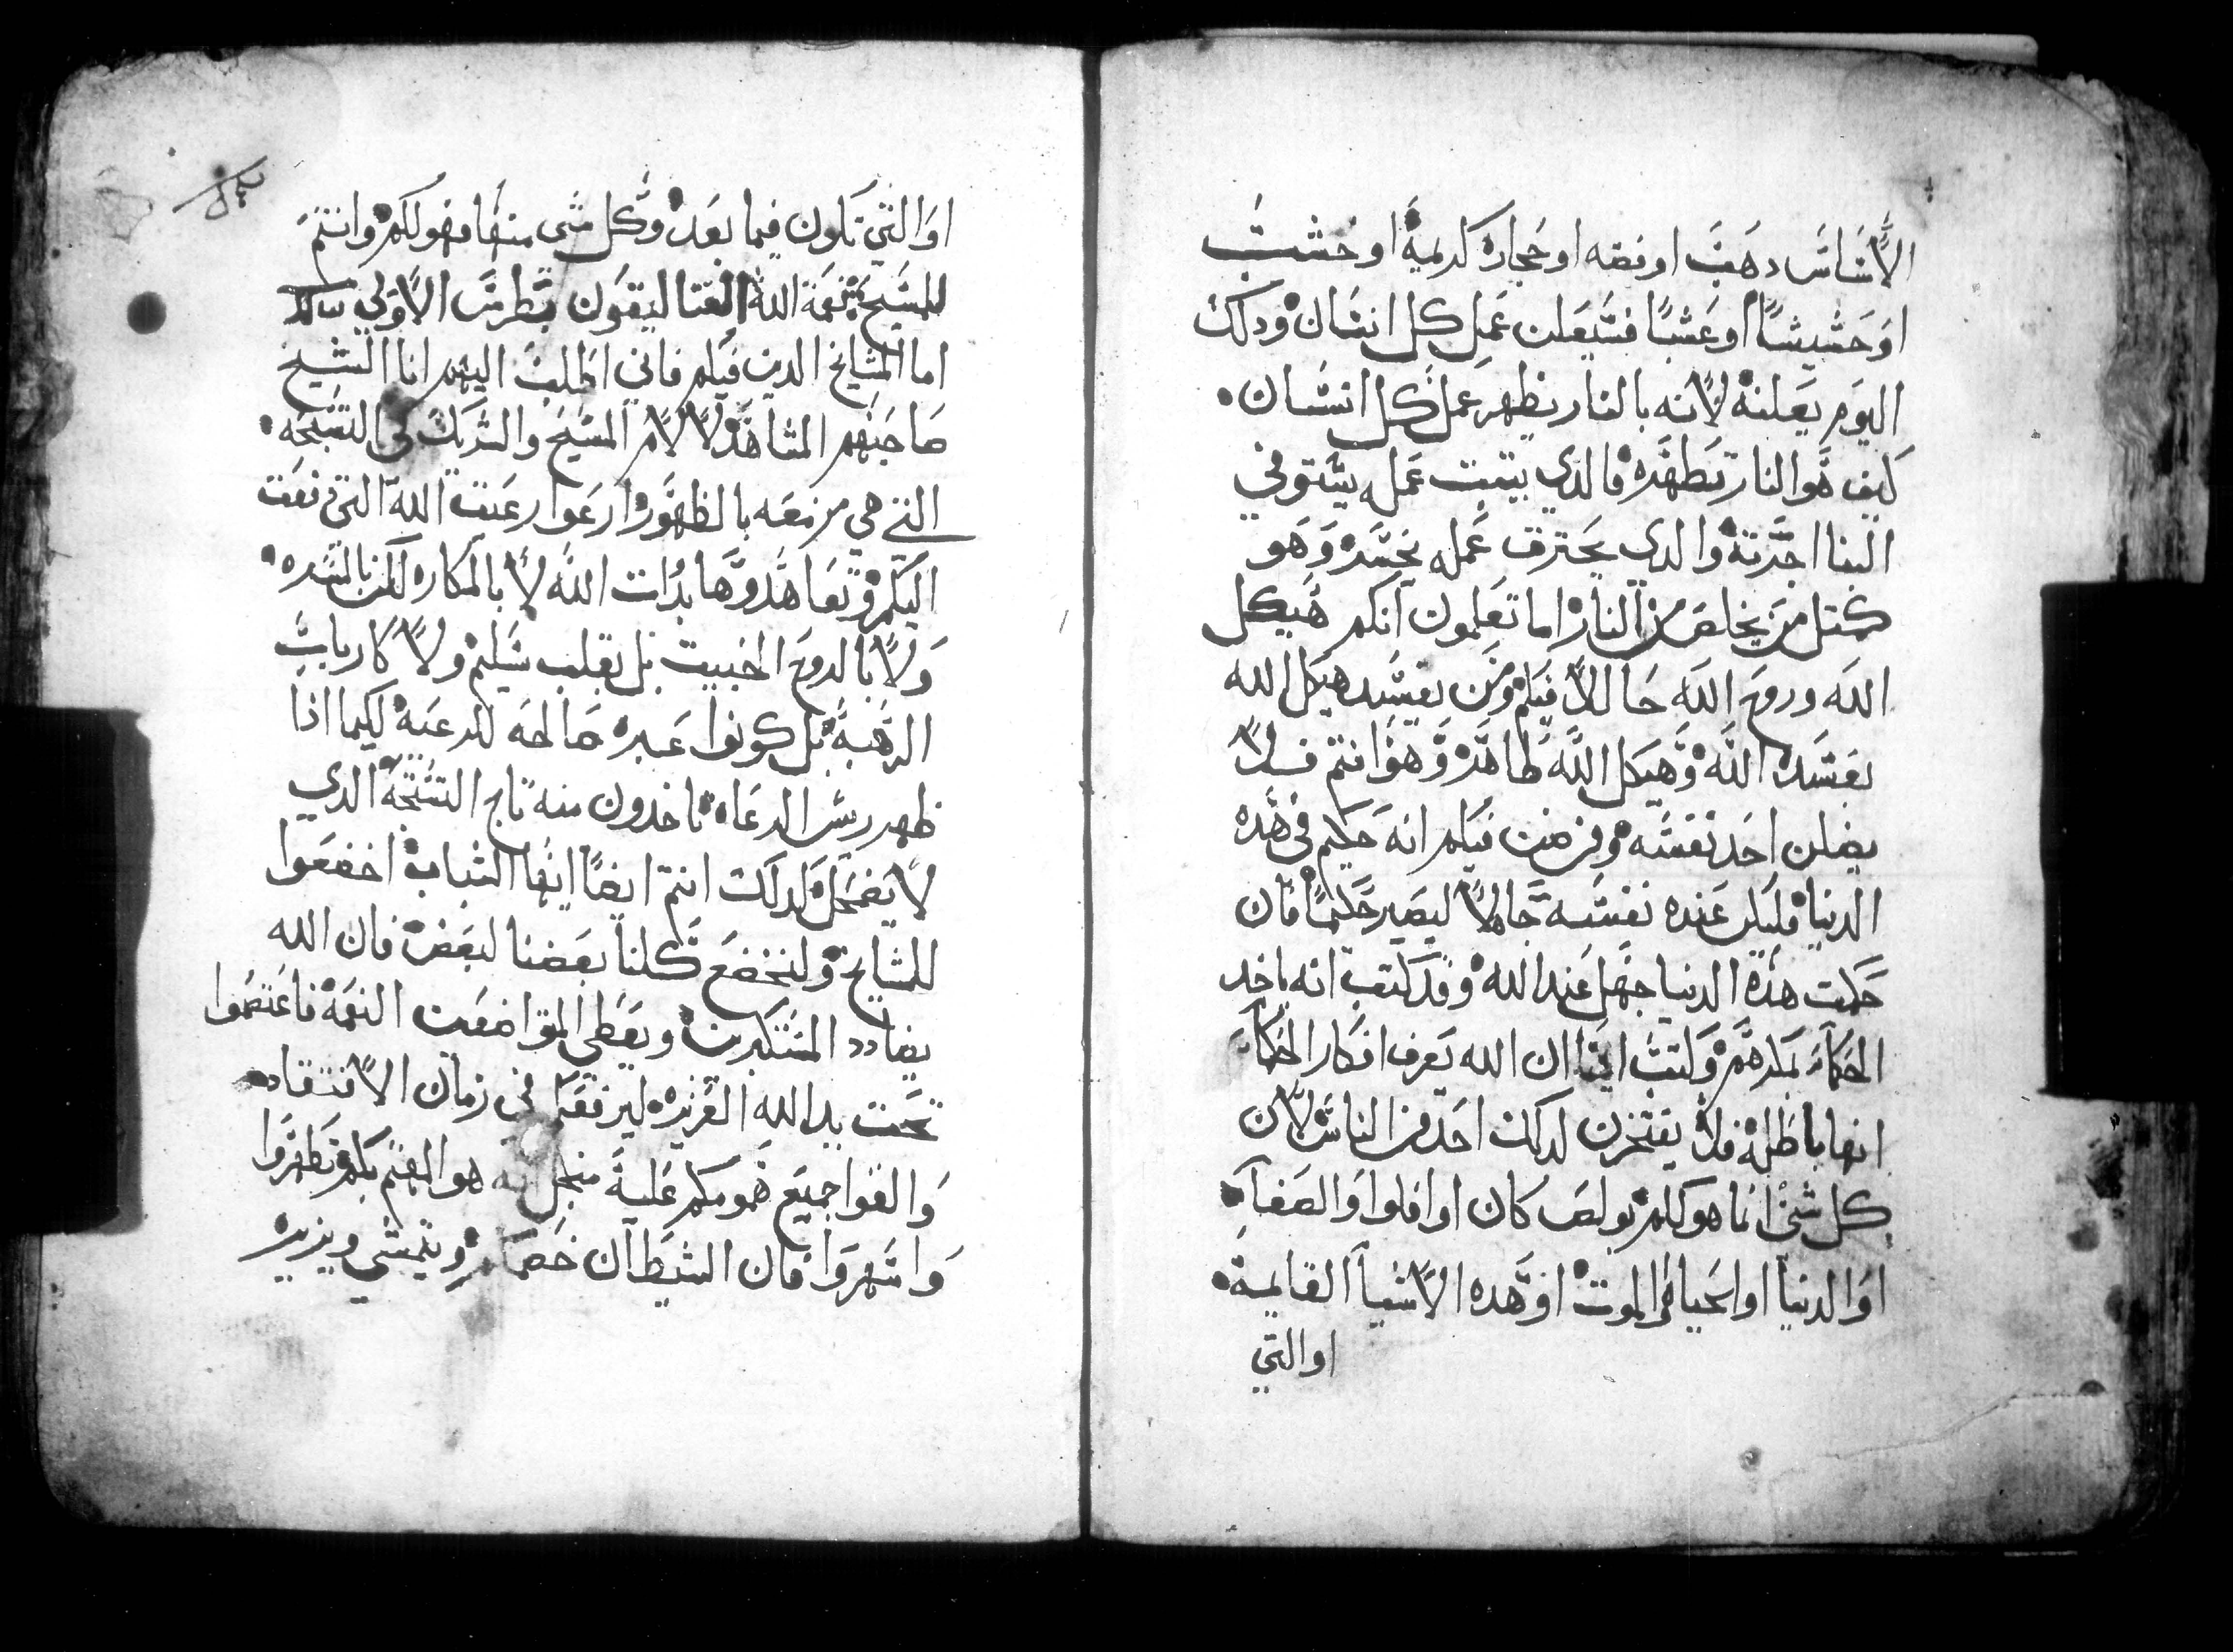 الاساس دهب او فضه او حجاره كريمة او خشب
او حشيشا او عشبا فسيعلن عمل كل انسان ودلك
اليوم يعلنه لانه بالنار يظهر عمل كل انسان
كيف هو النار تطهره فالدي يتبت عمله يستوفي
البنا اجرته والدي يحترق عمله يخسر وهو
كمتل من يخلص من النار اما تعلمون انكم هيكل
الله وروح الله حالا فيكم ومن يفسد هيكل الله
يفسده الله وهيكل الله طاهر وهو انتم فلا
يضلن احد نفسه ومن ضن فيكم انه حكيم في هده
الدنيا فليكن عنده نفسه جاهلا ليصير حكيما فان
حكمت هده الدنيا جهل عند الله وقد كتب انه ياخد
الحكماء بمكرهم وكتب ايضا ان الله يعرف افكار الحكماء
انها باطله فلا يفتخرن لدلك احد من الناس لان
كل شئ انما هو لكم بولص كان او افلوا والصفا
او الدنيا او الحياه او الموت او هده الاشيا القايمة
او التي
او التي تكون فيما بعد وكل شي منها فهو لكم وانتم
للمسيح بنعمة الله القتاليقون بطرس الاولي
اما المشايخ الدين فيكم فاني اطلب اليهم انا الشيخ
صاحبهم المشاهد لالام المسيح والشريك في التسبحه
التي هي مزمعه بالظهور ارعوا رعيت الله التي دفعت
اليكم وتعاهدوها بدات الله لا بالمكاره لكن بالمسره
ولا بالروح الخبيت بل بقلب سليم ولا كارباب
الرهبة بل كونوا عبره صالحه للرعيه لكيما اذا
ظهر ريس الرعاه تاخدون منه تاج التسبحة الدي
لا يضمحل كدلك انتم ايضا ايها الشباب اخضعوا
للمشايخ ولنخضع كلنا بعضنا لبعض فان الله
يضادد المستكبرين ويعطي المتواضعين النعمه فاعتصموا
تحت يد الله العزيزه ليرفعكم في زمان الافتقاد
والقوا جميع همومكم عليه هو المهتم بكم وتطهروا
واسهروا فان الشيطان خصمكم ويتمشي ويزير